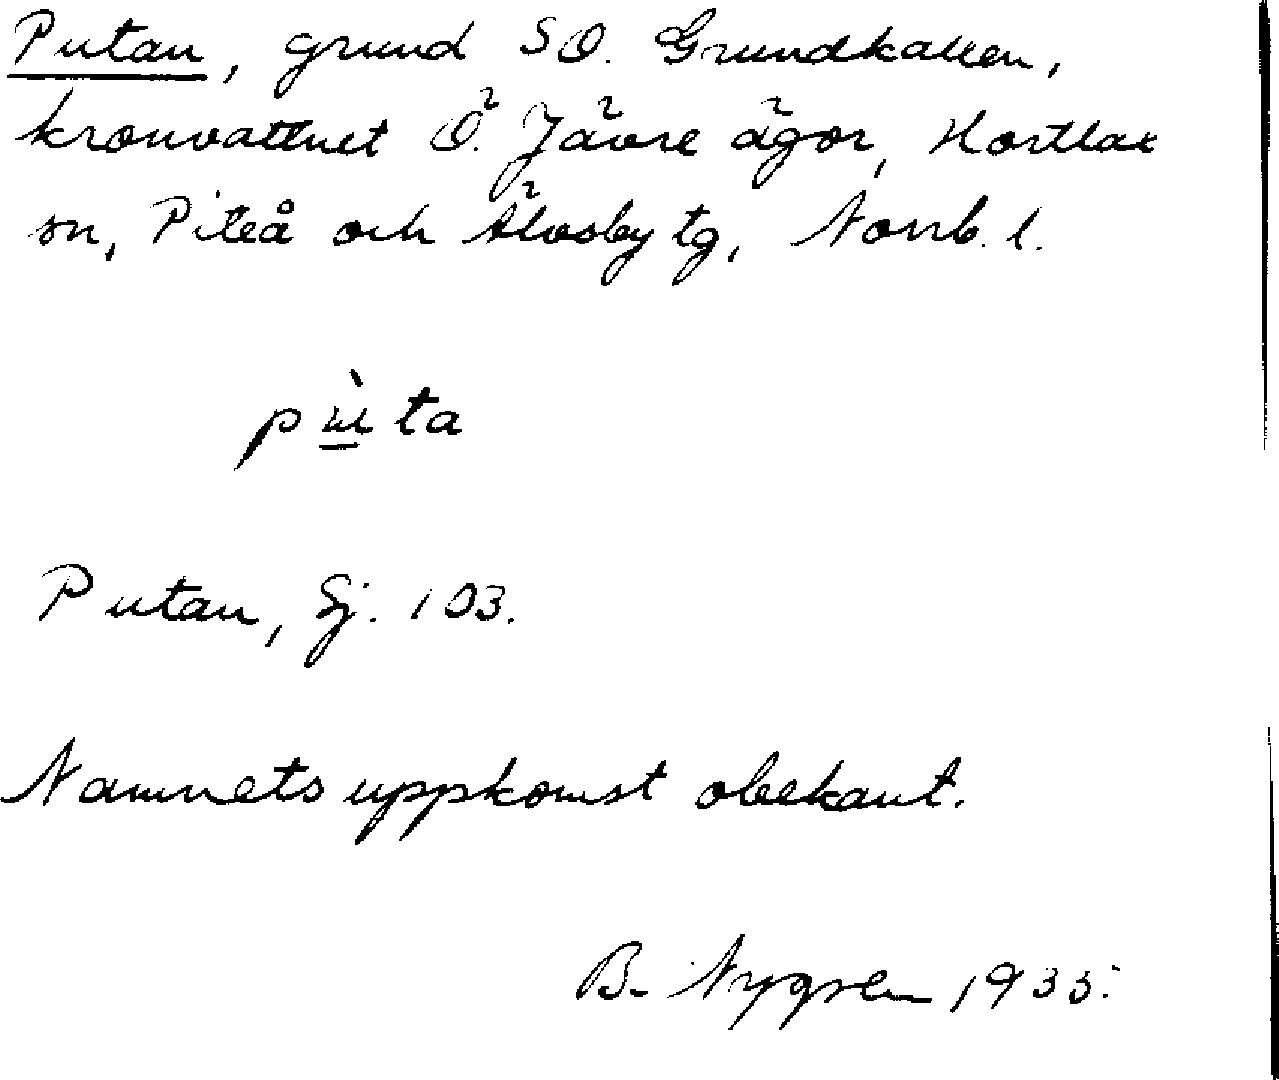 Putan, grund SO. Grundkallen,
kronvattnet Ö. Jävre ägor, Hortlax
sn, Piteå och Älvsby tg, Norrb. l.
pùta
Putan, Sj. 103.
Namnets uppkomst obekant.
B. Nygren 1935.